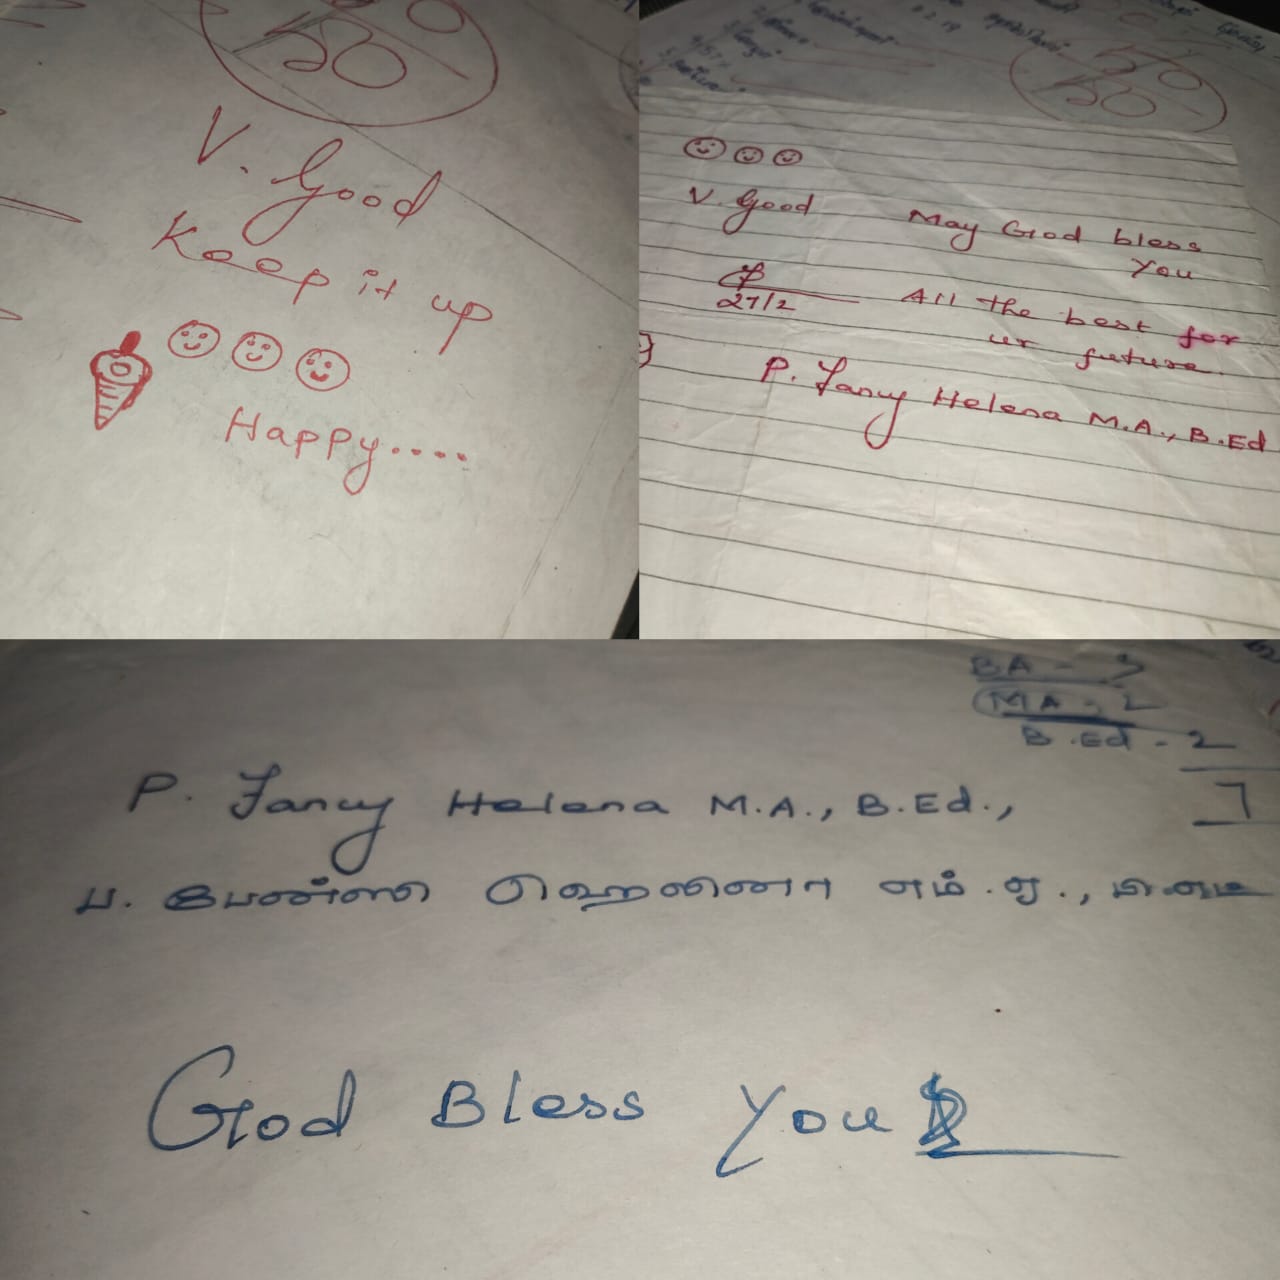 50
50
V. Good
Keep it up
Happy....
50
50
V. Good
May God bless
You
27/2
All the best for
ur future.
P. Fancy Helena M.A., B.Ed
BA - 3
MA - 2
B.Ed - 2
7
P. Fancy Helena M.A., B.Ed.,
ப. பேன்ஸி ஹெலனா எம்.ஏ.,
God Bless You